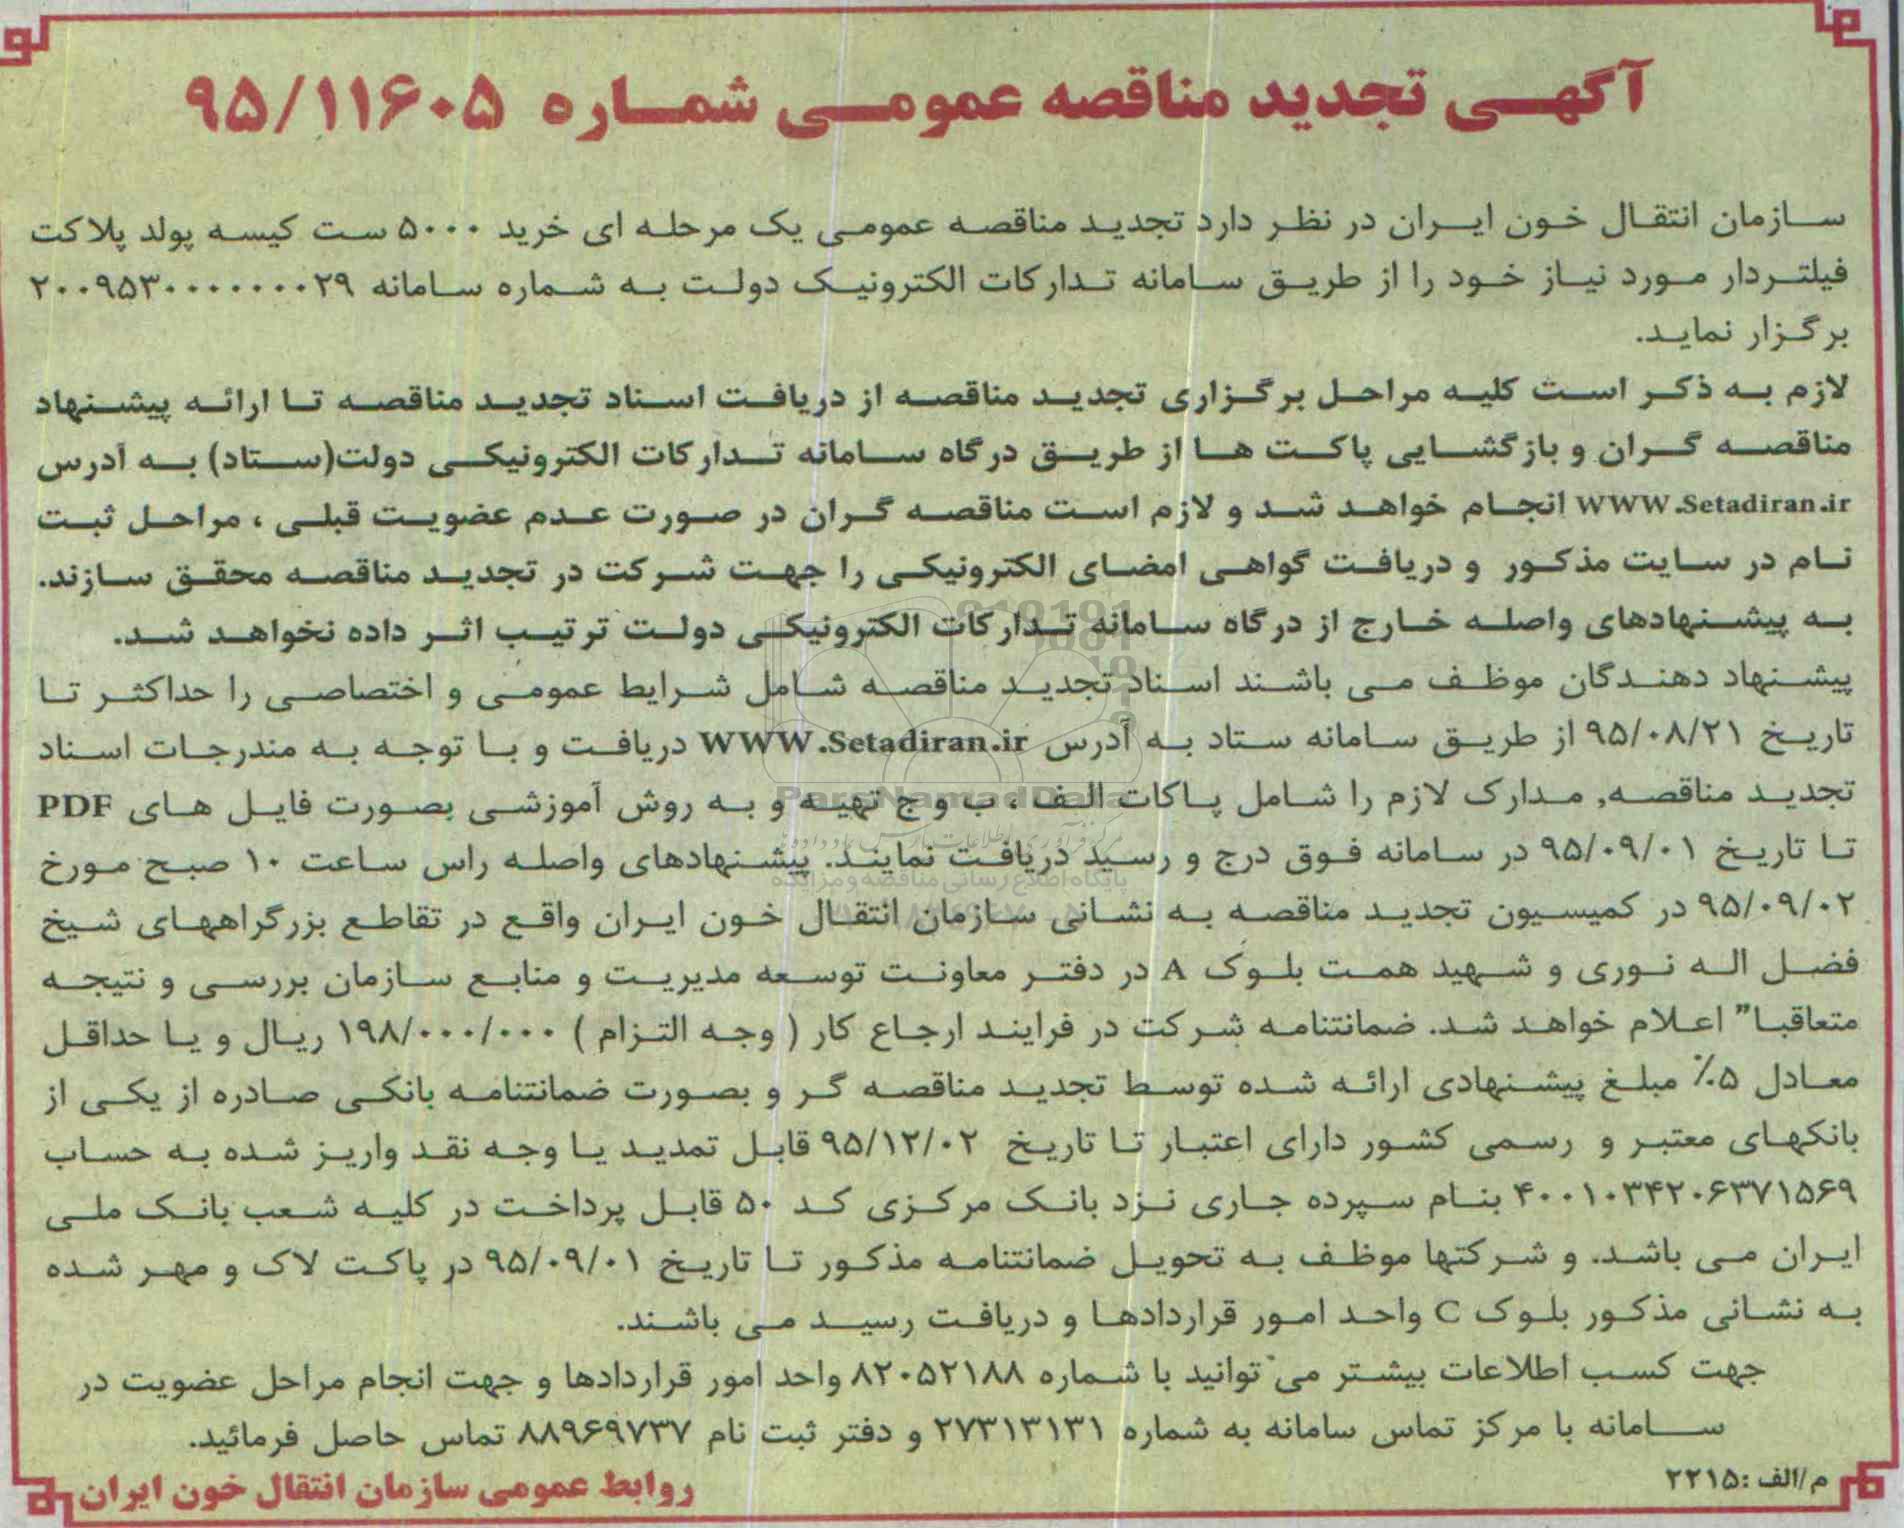 آگهی تجدید مناقصه عمومی شماره ۹۵/۱۱۶۰۵
سازمان انتقال خون ایران در نظر دارد تجدید مناقصه عمومی یک مرحله ای خرید ۵۰۰۰ ست کیسه پولد پلاکت
فیلتردار مورد نیاز خود را از طریق سامانه تدارکات الکترونیک دولت به شماره سامانه ۲۰۰۹۵۳۰۰۰۰۰۰۰۰۲۹
برگزار نماید.
لازم به ذکر است کلیه مراحل برگزاری تجدید مناقصه از دریافت اسناد تجدید مناقصه تا ارائه پیشنهاد
مناقصه گران و بازگشایی پاکت ها از طریق درگاه سامانه تدارکات الکترونیکی دولت(ستاد) به آدرس
WWW.Setadiran.ir انجام خواهد شد و لازم است مناقصه گران در صورت عدم عضویت قبلی ، مراحل ثبت
نام در سایت مذکور و دریافت گواهی امضای الکترونیکی را جهت شرکت در تجدید مناقصه محقق سازند.
به پیشنهادهای واصله خارج از درگاه سامانه تدارکات الکترونیکی دولت ترتیب اثر داده نخواهد شد.
پیشنهاد دهندگان موظف می باشند اسناد تجدید مناقصه شامل شرایط عمومی و اختصاصی را حداکثر تا
تاریخ ۹۵/۰۸/۲۱ از طریق سامانه ستاد به آدرس WWW.Setadiran.ir دریافت و با توجه به مندرجات اسناد
تجدید مناقصه, مدارک لازم را شامل پاکات الف ، ب و ج تهیه و به روش آموزشی بصورت فایل های PDF
تا تاریخ ۹۵/۰۹/۰۱ در سامانه فوق درج و رسید دریافت نمایند. پیشنهادهای واصله راس ساعت ۱۰ صبح مورخ
۹۵/۰۹/۰۲ در کمیسیون تجدید مناقصه به نشانی سازمان انتقال خون ایران واقع در تقاطع بزرگراههای شیخ
فضل اله نوری و شهید همت بلوک A در دفتر معاونت توسعه مدیریت و منابع سازمان بررسی و نتیجه
متعاقبا" اعلام خواهد شد. ضمانتنامه شرکت در فرایند ارجاع کار ( وجه التزام ) ۱۹۸/۰۰۰/۰۰۰ ریال و یا حداقل
معادل ۵٪ مبلغ پیشنهادی ارائه شده توسط تجدید مناقصه گر و بصورت ضمانتنامه بانکی صادره از یکی از
بانکهای معتبر و رسمی کشور دارای اعتبار تا تاریخ ۹۵/۱۲/۰۲ قابل تمدید یا وجه نقد واریز شده به حساب
۴۰۰۱۰۳۴۲۰۶۳۷۱۵۶۹ بنام سپرده جاری نزد بانک مرکزی کد ۵۰ قابل پرداخت در کلیه شعب بانک ملی
ایران می باشد. و شرکتها موظف به تحویل ضمانتنامه مذکور تا تاریخ ۹۵/۰۹/۰۱ در پاکت لاک و مهر شده
به نشانی مذکور بلوک C واحد امور قراردادها و دریافت رسید می باشند.
جهت کسب اطلاعات بیشتر می توانید با شماره ۸۲۰۵۲۱۸۸ واحد امور قراردادها و جهت انجام مراحل عضویت در
سامانه با مرکز تماس سامانه به شماره ۲۷۳۱۳۱۳۱ و دفتر ثبت نام ۸۸۹۶۹۷۳۷ تماس حاصل فرمائید.
م/الف :۲۲۱۵
روابط عمومی سازمان انتقال خون ایران
ParsNamadData
پایگاه اطلاع رسانی مناقصه و مزایده